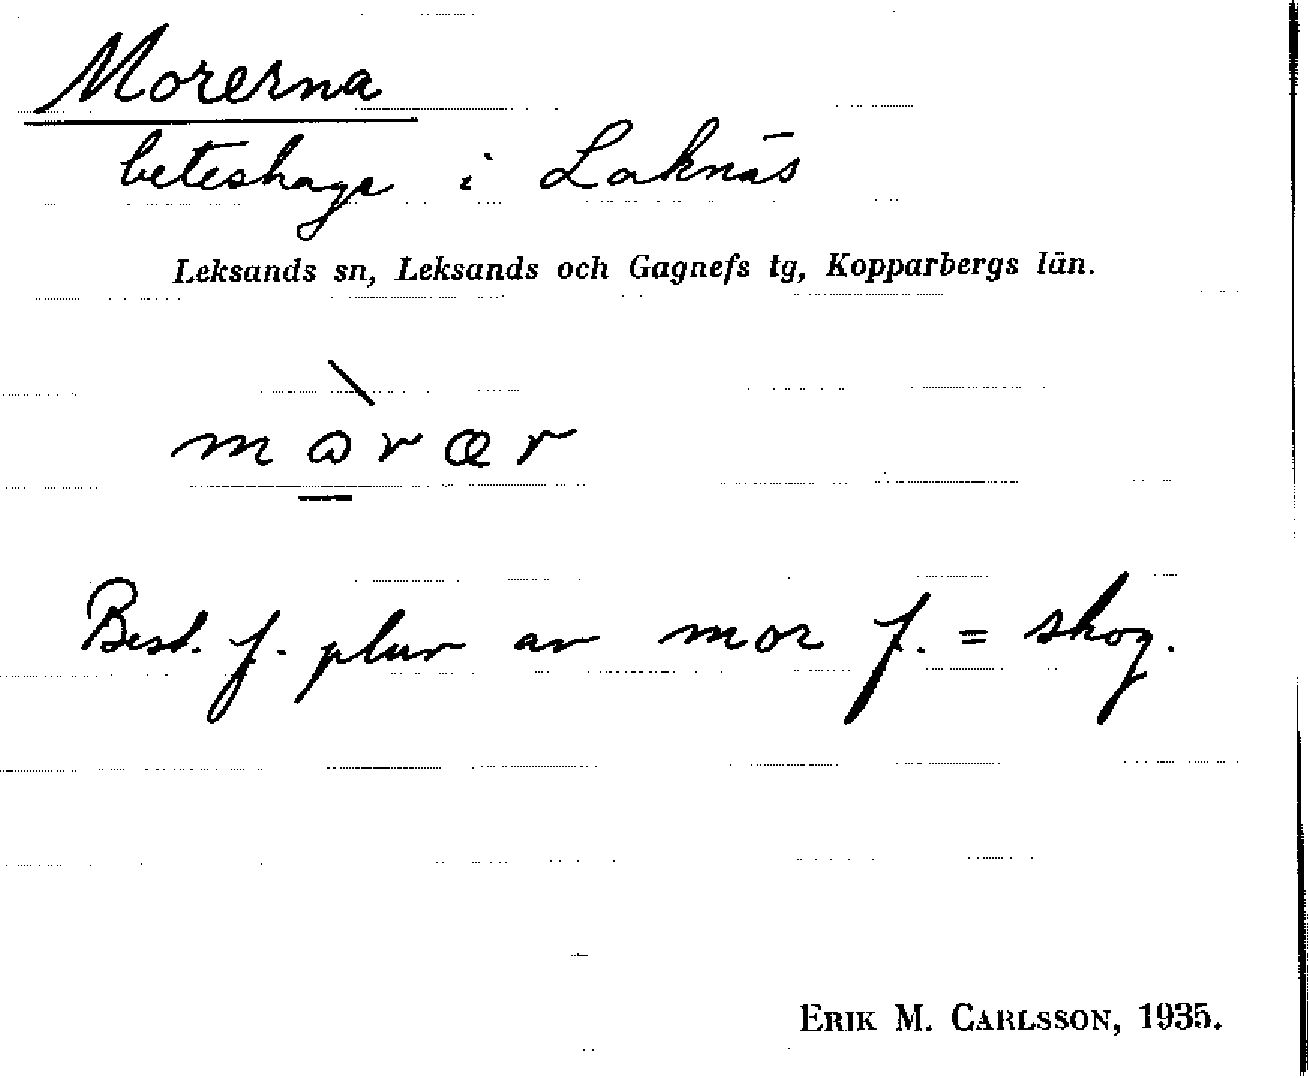 Morerna
beteshage i Laknäs
Leksands sn, Leksands och Gagnefs tg, Kopparbergs län.
Best. f. plur av mor f. = skog.
ERIK M. CARLSSON, 1935.